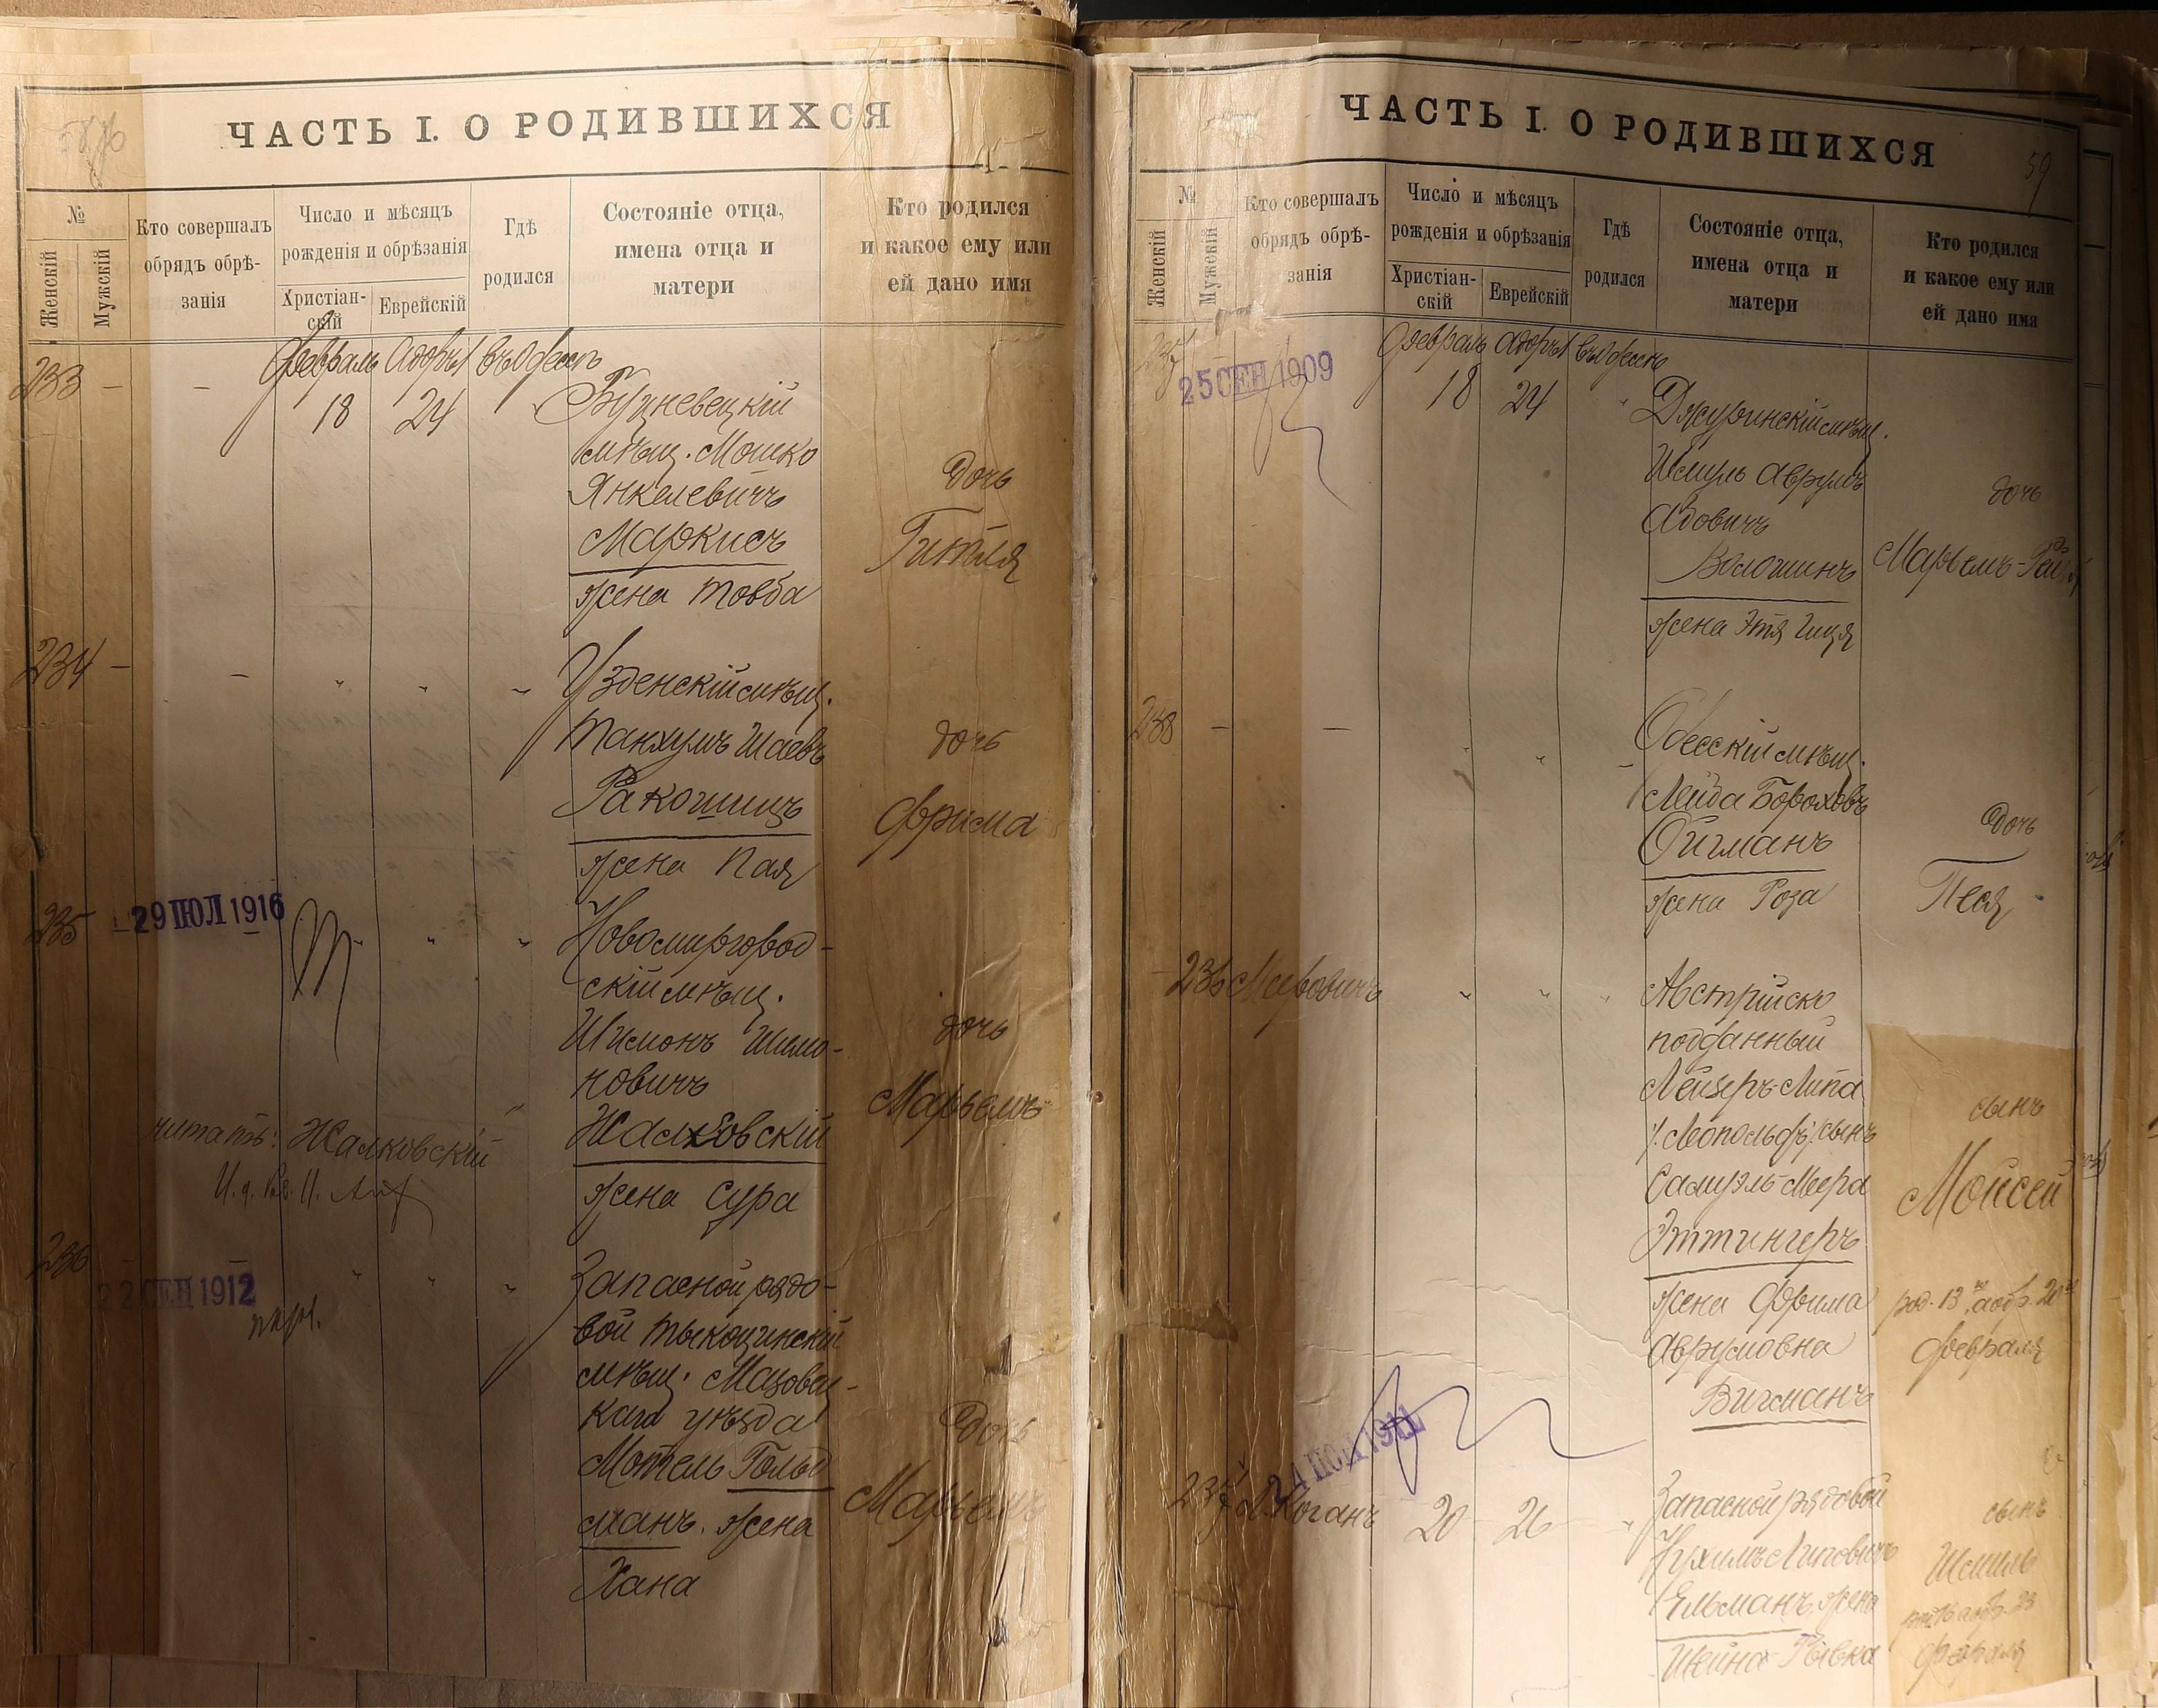 ЧАСТЬ I. О РОДИВШИХСЯ
№
Женскій
Мужскій
Кто совершалъ
обрядъ обрѣ-
занія
Число и мѣсяцъ
рожденія и обрѣзанія
Христіан-
скій
Еврейскій
Гдѣ
родился
Состояніе отца,
имена отца и
матери
Кто родился
и какое ему или
ей дано имя
Февраль Адоръ I въ Одессѣ
233 — — 18 24
мѣщ. Мошко
Янкелевичъ
Маркисъ
жена Товба
дочь
Гитля
234 — — " " "
Узденскій мѣщ.
Танхумъ Шаевъ
Ракошицъ
жена Пая
дочь
Фрима
235
29 ІЮЛ 1916
Новомиргород-
скій мѣщ.
Шимонъ Шимо-
новичъ
Жалковскій
жена Сура
дочь
Марьемъ
читать: Жалковскій
236
22 СЕН 1912
Запасной рядо-
вой Тыкоцинскій
мѣщ. Мазовец-
каго уѣзда
Мотель Гольд
манъ. жена
Хана
дочь
Марьемъ
ЧАСТЬ I. О РОДИВШИХСЯ
59
№
Женскій
Мужскій
Кто совершалъ
обрядъ обрѣ-
занія
Число и мѣсяцъ
рожденія и обрѣзанія
Христіан-
скій
Еврейскій
Гдѣ
родился
Состояніе отца,
имена отца и
матери
Кто родился
и какое ему или
ей дано имя
237
25 СЕН 1909
Февраль Адоръ I въ Одессѣ
18 24 "
Джуринскій мѣщ.
Шмуль Аврумъ
Абовичъ
Вологинъ
жена Этя
дочь
238 — — " " "
Одесскій мѣщ.
Лейба Бороховъ
Ойгманъ
жена Роза
дочь
Песя
— 236 Меерович " " "
Австрійско
подданный
Лейзеръ-Липа
/:Леопольдъ:/ сынъ
Самуэль-Меера
Эттингеръ
жена Фрима
Аврумовна
Вигманъ
сынъ
Моисей
род. 13го, а обр. 20го
февраля
24 ІЮЛ 1911
237 Коганъ 20 26 "
Запасной рядовой
Нухимъ Липовичъ
Ельманъ, жена
Шейна-Рывка
сынъ
Шмиль
16 а обр. 23
февраля